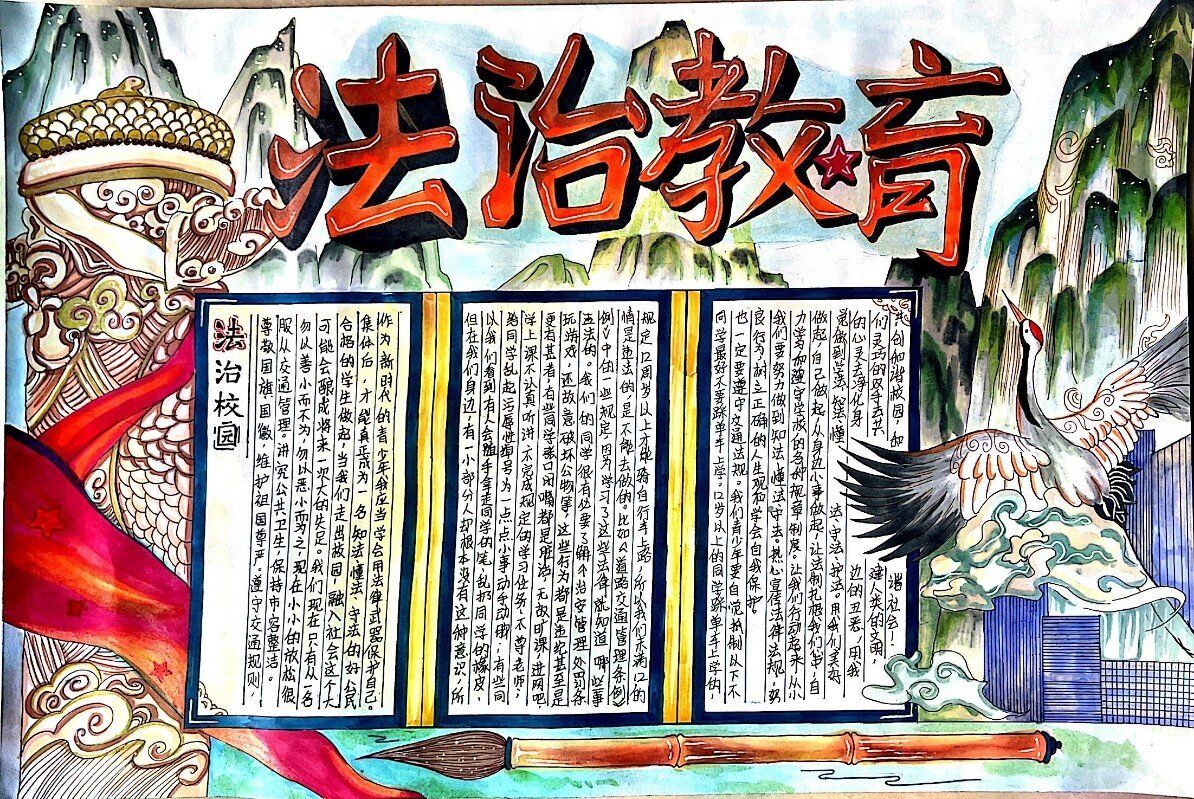 法治教育
法治校园
尊敬国旗国徽,维护祖国尊严。遵守交通规则,
服从交通管理。讲究公共卫生,保持市容整洁。
勿以善小而不为,勿以恶小而为之,现在小小的放松很
可能会酿成将来一次大的失足。我们现在只有从一名
合格的学生做起,当我们走出校园,融入社会这个大
集体后,才能真正成为一名知法、懂法、守法的好公民
作为新时代的青少年我应当学会用法律武器保护自己。
但在我们身边,有一小部分人却根本没有这种意识,所
以我们看到有人会随手拿走同学的笔,乱扔同学的橡皮,
给同学乱起污辱性绰号,为一点点小事动手动脚;有些同
学上课不认真听讲,不完成规定的学习任务,不尊老师;
更有甚者,有些同学张口闭嘴都是脏话,无故旷课,进网吧
玩游戏,还故意破坏公物等,这些行为都是违纪甚至是
违法的。我们的同学很有必要了解《治安管理处罚条
例》中的一些规定,因为学习了这些法律,就知道哪些事
情是违法的,是不能去做的。比如《道路交通管理条例》
规定12周岁以上才能骑自行车上路,所以我们未满12的
同学最好不要骑单车上学。12岁以上的同学骑单车上学的
也一定要遵守交通法规。我们青少年要自觉抵制以下不
良行为,树立正确的人生观和学会自我保护
我们要努力做到知法懂法守法,热心宣传法律法规,努
力学习加遵守学校的各种规章制度。让我们行动起来,从小
做起,自己做起,从身边小事做起,让法制扎根我们心中,自
觉做到学法、知法、懂法、守法、护法,用我们美好
的心灵去净化身边的丑恶,用我
们灵巧的双手去共建人类的文明,
共创和谐校园,和谐社会!